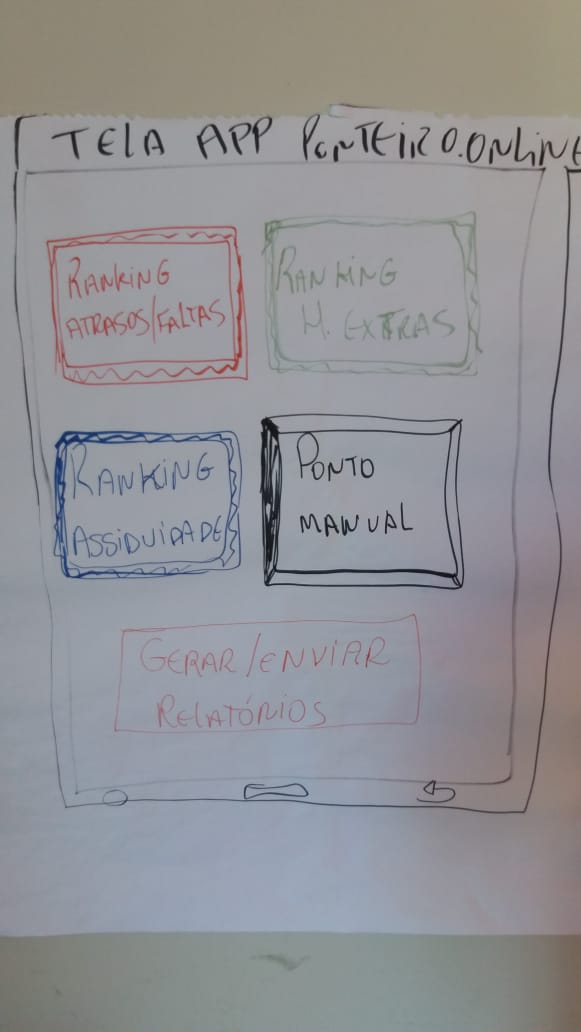 TELA APP PONTEIRO.ONLINE
RANKING
ATRASOS/FALTAS
RANKING
H. EXTRAS
RANKING
ASSIDUIDADE
PONTO
MANUAL
GERAR/ENVIAR
RELATÓRIOS